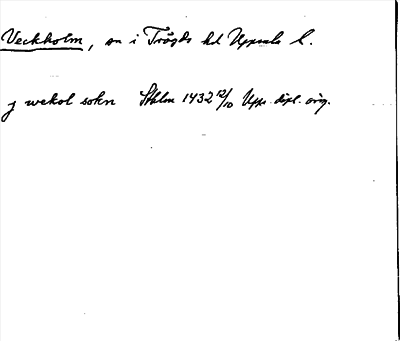 Veckholm, sn i Trögds hd Uppsala l.
j wekol sokn Sthlm 1432 12/10 Upps. dipl. orig.